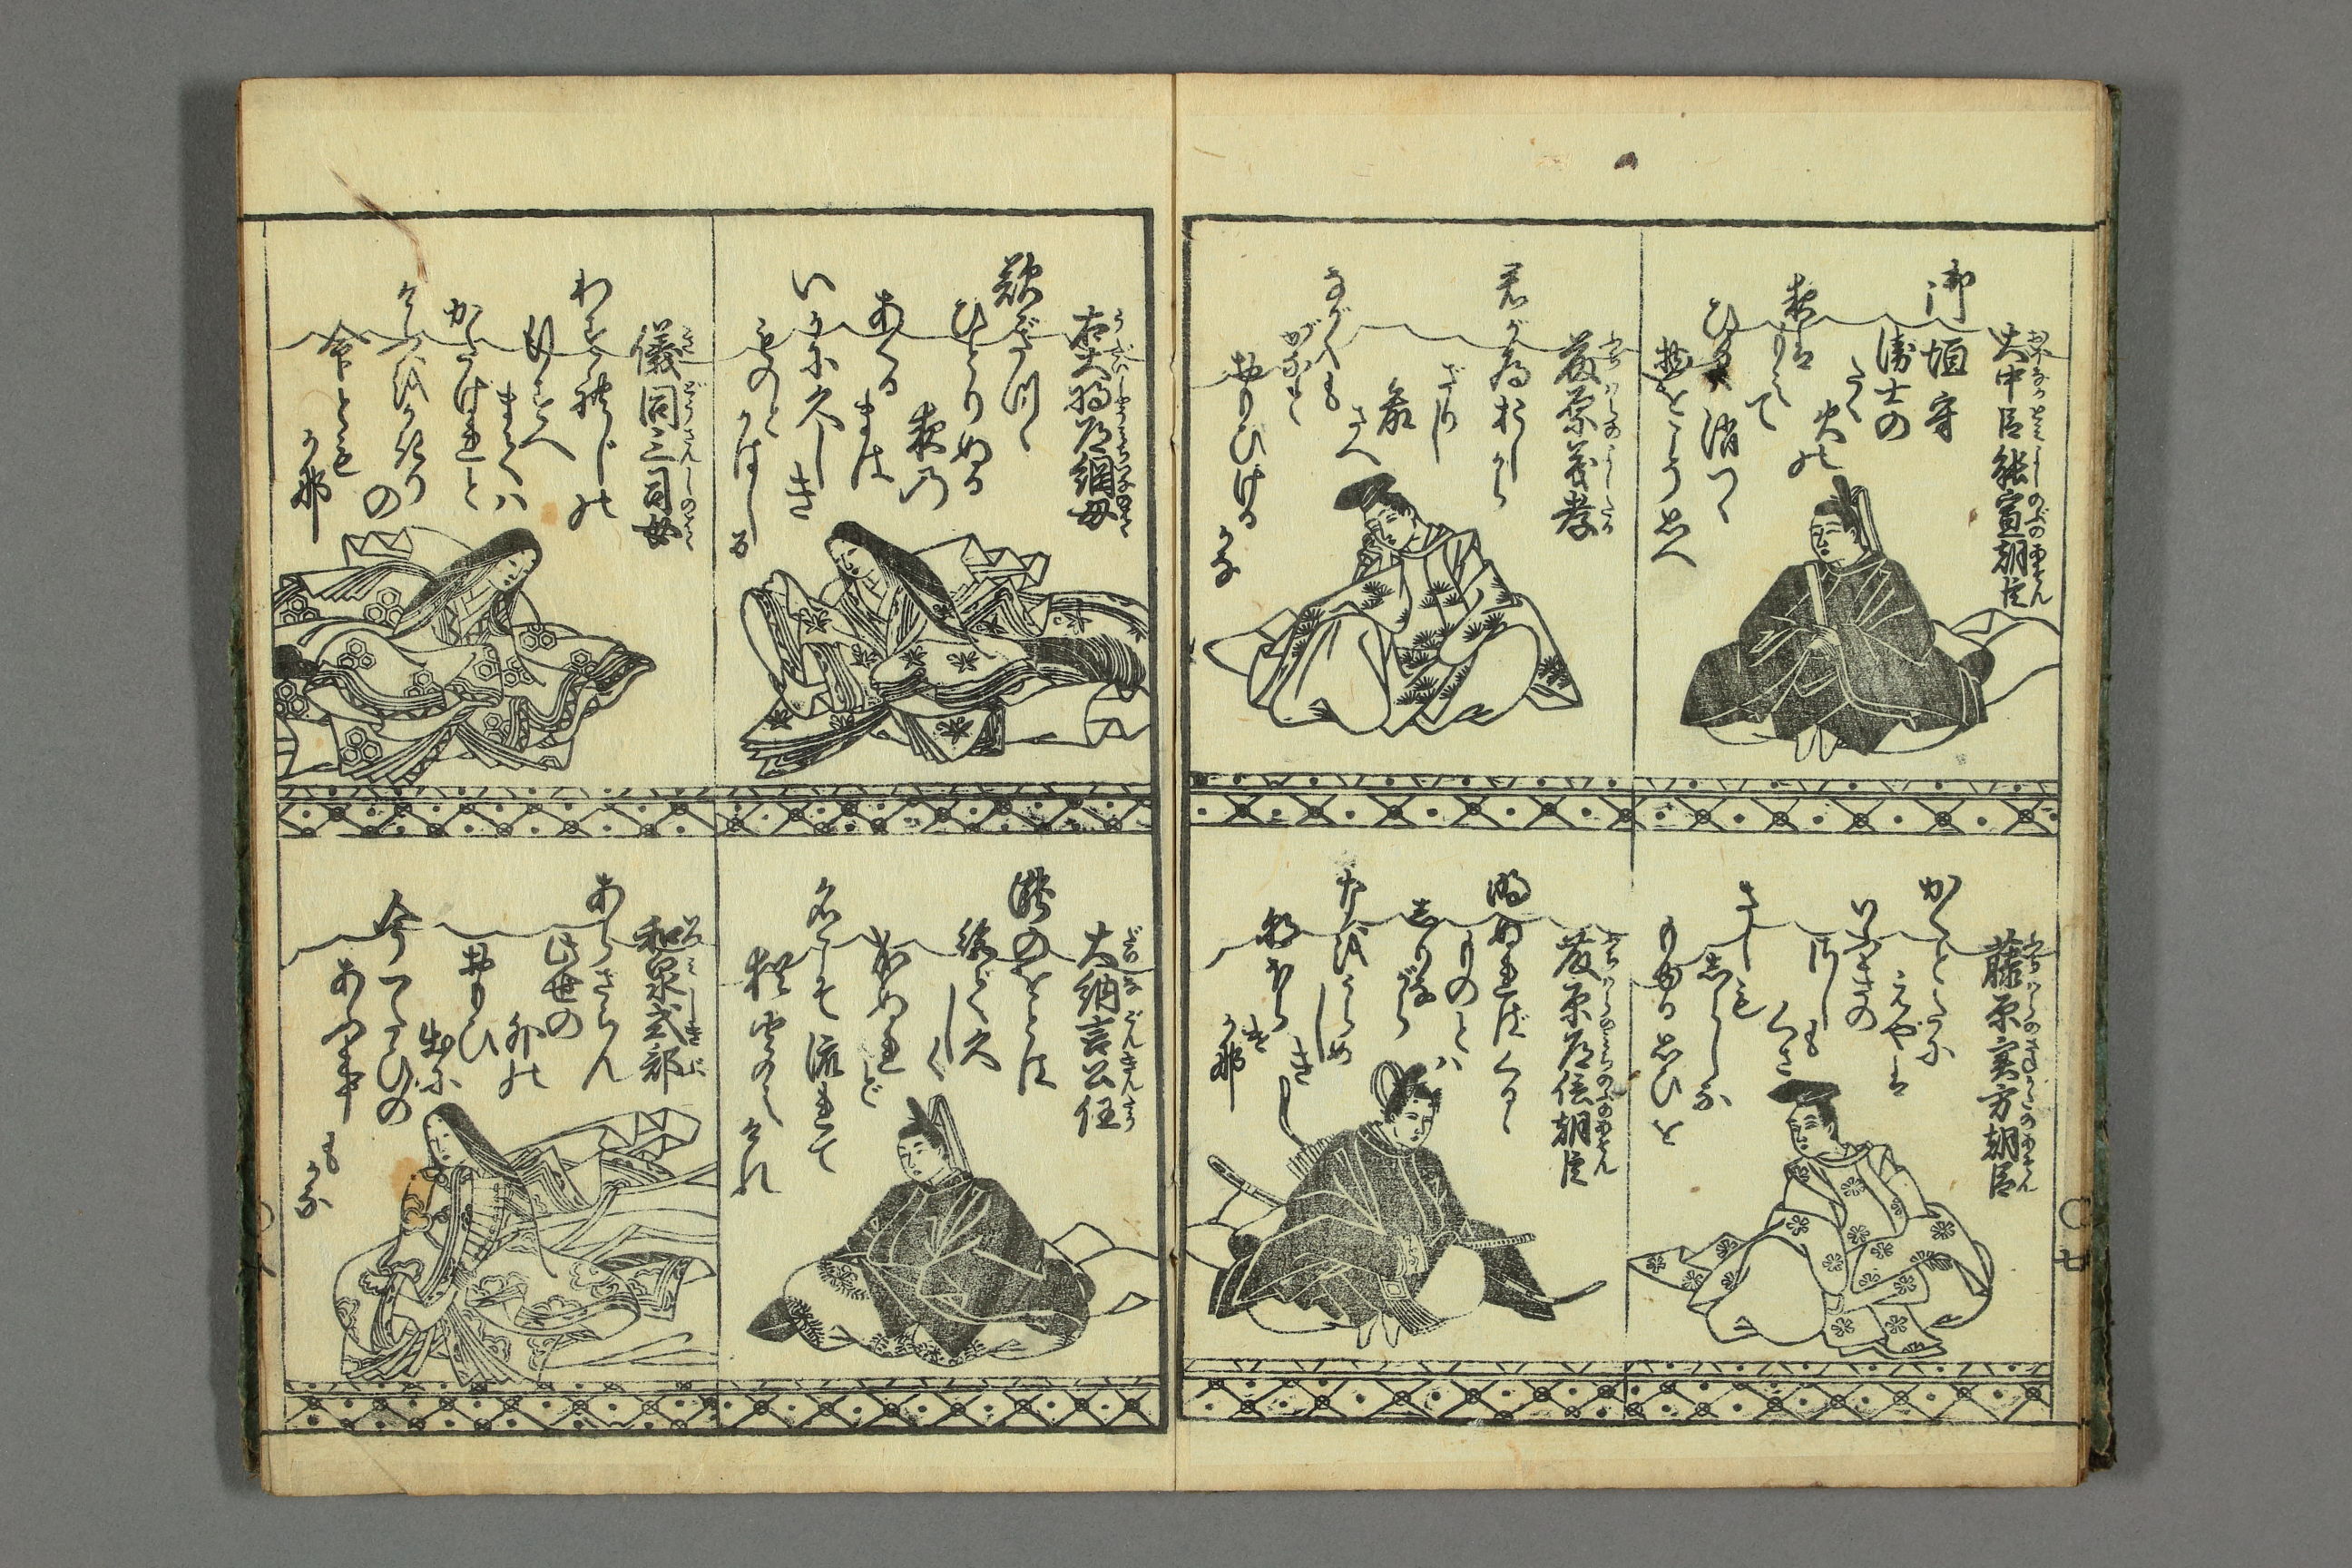 大中臣能宣朝臣
御垣守
衛士の
たく
火の
夜は
もえて
ひるは消つゝ
物をこそ思へ
藤原義孝
君が為おしから
ざりし
命さへ
ながくも
がなと
おもひける
かな
藤原実方朝臣
かくとだに
えやは
いぶきの
さしも
ぐさ
さしも
しらじな
もゆる思ひを
藤原道信朝臣
明ぬればくるゝ
ものとは
しりながら
なをうらめし
き
朝ぼらけ
かな
右大将道綱母
歎きつゝ
ひとりぬる
夜の
あくるまは
いかに久しき
ものとかはしる
儀同三司母
わすれじの
行すへ
までは
かたければ
けふをかぎりの
命とも
かな
大納言公任
滝のをとは
絶て久しく
なりぬれど
名こそ流れて
猶聞えけれ
和泉式部
あらざらん
此世の
外の
おもひ
出に
今一たびの
あふ事
もがな